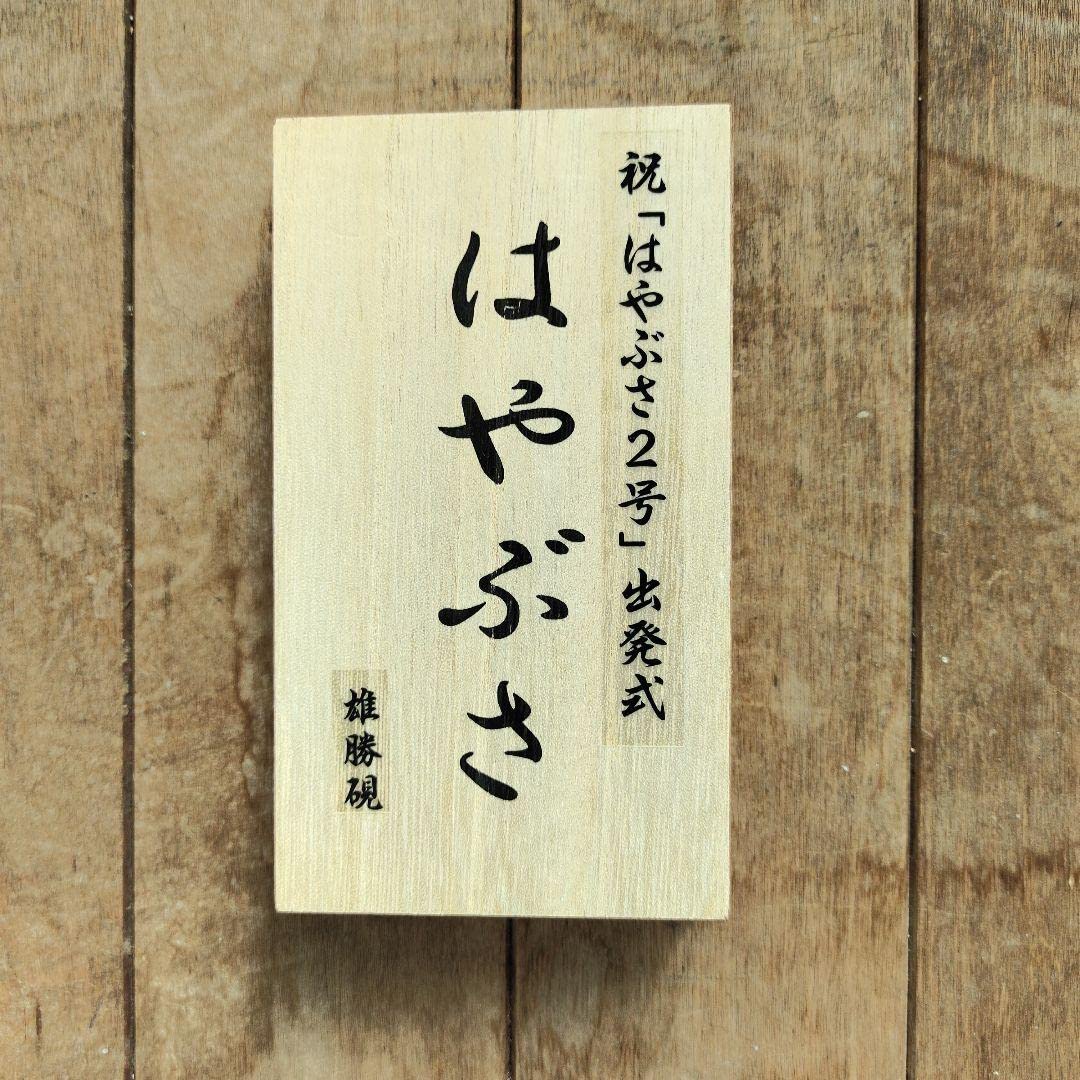 祝「はやぶさ２号」出発式
はやぶさ
雄勝硯